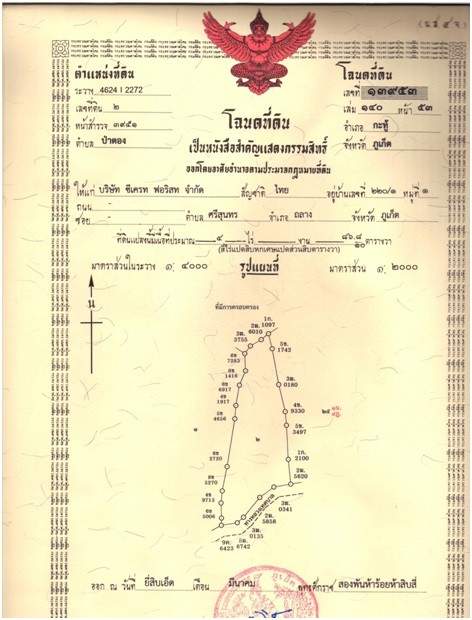 (น.ส. ๔ จ.)
ตำแหน่งที่ดิน
ระวาง 4624 I 2272
เลขที่ดิน ๒
หน้าสำรวจ ๓๙๕๑
ตำบล ป่าตอง
โฉนดที่ดิน
เลขที่ ๑๓๙๕๓
เล่ม ๑๔๐ หน้า ๕๓
อำเภอ กะทู้
จังหวัด ภูเก็ต
โฉนดที่ดิน
เป็นหนังสือสำคัญแสดงกรรมสิทธิ์
ออกโดยอาศัยอำนาจตามประมวลกฎหมายที่ดิน
ให้แก่ บริษัท ซีเครท ฟอริสท จำกัด สัญชาติ ไทย อยู่บ้านเลขที่ ๒๒๐/๑ หมู่ที่ ๑
ถนน -
ซอย - ตำบล ศรีสุนทร อำเภอ ถลาง จังหวัด ภูเก็ต
ที่ดินแปลงนี้มีเนื้อที่ประมาณ ๕ ไร่ - งาน ๘๖.๘/๑๐ ตารางวา
(สี่ไร่แปดสิบหกเศษแปดส่วนสิบตารางวา)
มาตราส่วนในระวาง ๑: ๔๐๐๐
รูปแผนที่
มาตราส่วน ๑: ๒๐๐๐
น
ที่มีการครอบครอง
1ก. 1097
2ผ. 6010
3ผ. 3755
5ข. 1742
6ข. 7283
6ข. 1416
3ผ. 0180
6ข. 6917
4ข. 1917
5ข. 4656
4ข. 9330
๒๕
5ข. 3497
๑
๒
1ก. 2100
3720
2ผ. 5620
5270
9713
5006
ทางหลวงเทศบาล
3ผ. 0341
2ผ. 5858
3ผ. 0135
5ผ. 6742
9ค. 6423
ออก ณ วันที่ ยี่สิบเอ็ด เดือน มีนาคม พุทธศักราช สองพันห้าร้อยห้าสิบสี่